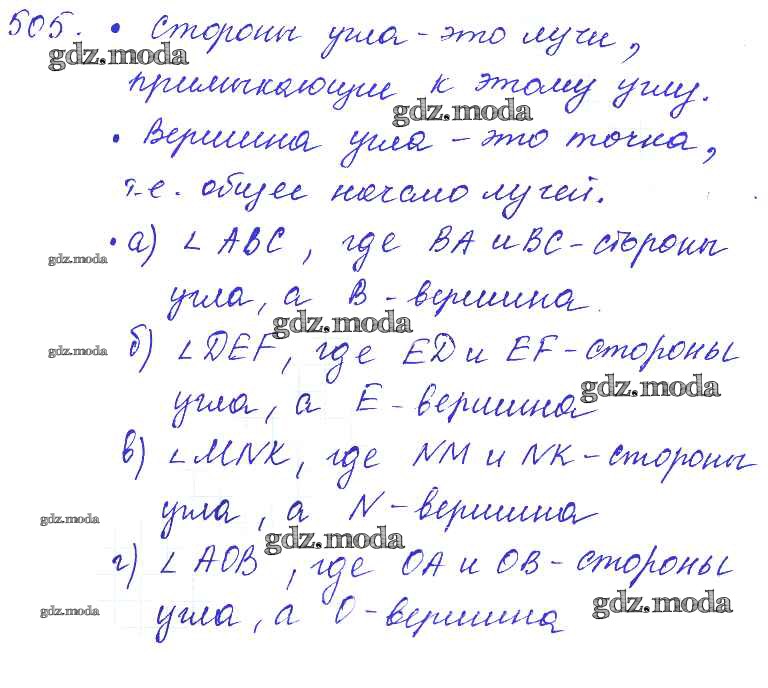 505. • Стороны угла - это лучи,
gdz.moda
примыкающие к этому углу.
gdz.moda
• Вершина угла - это точка,
т.е. общее начало лучей.
• а) ∠ABC, где BA и BC - стороны
gdz.moda
угла, а B - вершина
gdz.moda
б) ∠DEF, где ED и EF - стороны
gdz.moda
gdz.moda
угла, а E - вершина
в) ∠MNK, где NM и NK - стороны
угла, а N - вершина
gdz.moda
gdz.moda
г) ∠AOB, где OA и OB - стороны
угла, а O - вершина
gdz.moda
gdz.moda